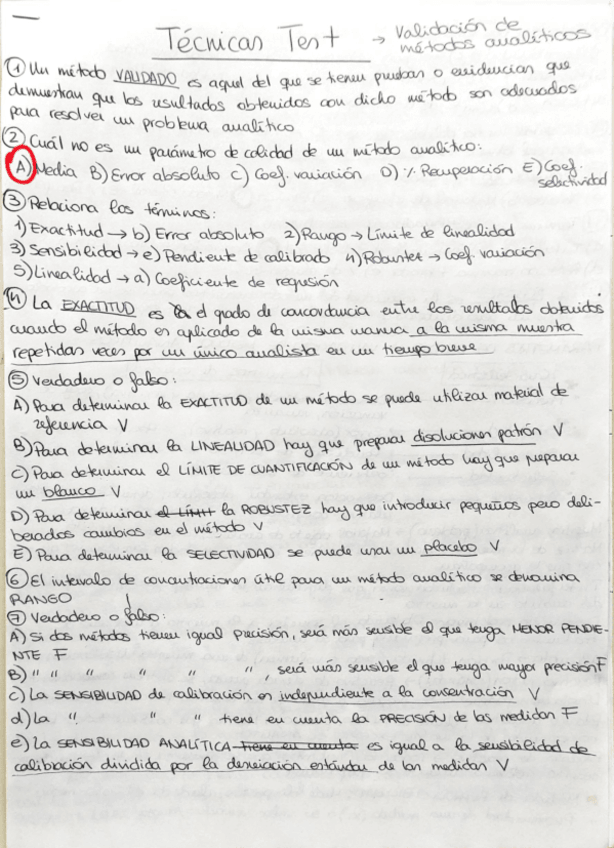 Técnicas Test → Validación de
métodos analíticos
① Un método VALIDADO es aquel del que se tienen pruebas o evidencias que
demuestran que los resultados obtenidos con dicho método son adecuados
para resolver un problema analítico
② Cuál no es un parámetro de calidad de un método analítico:
A) Media B) Error absoluto C) Coef. variación D) % Recuperación E) Coef.
selectividad
③ Relaciona los términos:
1) Exactitud → b) Error absoluto 2) Rango → Límite de linealidad
3) Sensibilidad → e) Pendiente de calibrado 4) Robustez → Coef. variación
5) Linealidad → a) Coeficiente de regresión
④ La EXACTITUD es el grado de concordancia entre los resultados obtenidos
cuando el método es aplicado de la misma manera a la misma muestra
repetidas veces por un único analista en un tiempo breve
⑤ Verdadero o falso:
A) Para determinar la EXACTITUD de un método se puede utilizar material de
referencia V
B) Para determinar la LINEALIDAD hay que preparar disoluciones patrón V
C) Para determinar el LÍMITE DE CUANTIFICACIÓN de un método hay que preparar
un blanco V
D) Para determinar el Límit la ROBUSTEZ hay que introducir pequeños pero deli-
berados cambios en el método V
E) Para determinar la SELECTIVIDAD se puede usar un placebo V
⑥ El intervalo de concentraciones útil para un método analítico se denomina
RANGO
⑦ Verdadero o falso:
A) Si dos métodos tienen igual precisión, será más sensible el que tenga MENOR PENDIE-
NTE F
B) " " " " " " ", será más sensible el que tenga mayor precisión F
c) La SENSIBILIDAD de calibración es independiente a la concentración V
d) La " " " tiene en cuenta la PRECISIÓN de las medidas F
e) La SENSIBILIDAD ANALÍTICA tiene en cuenta es igual a la sensibilidad de
calibración dividida por la desviación estándar de las medidas V